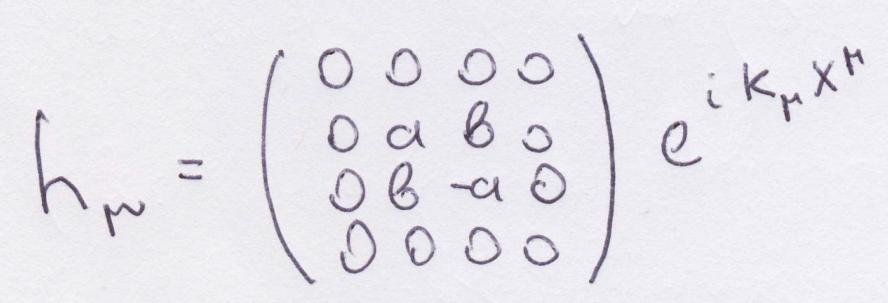 h_μν = ( 0 0 0 0
0 a b 0
0 b -a 0
0 0 0 0 ) e^{i k_μ x^μ}